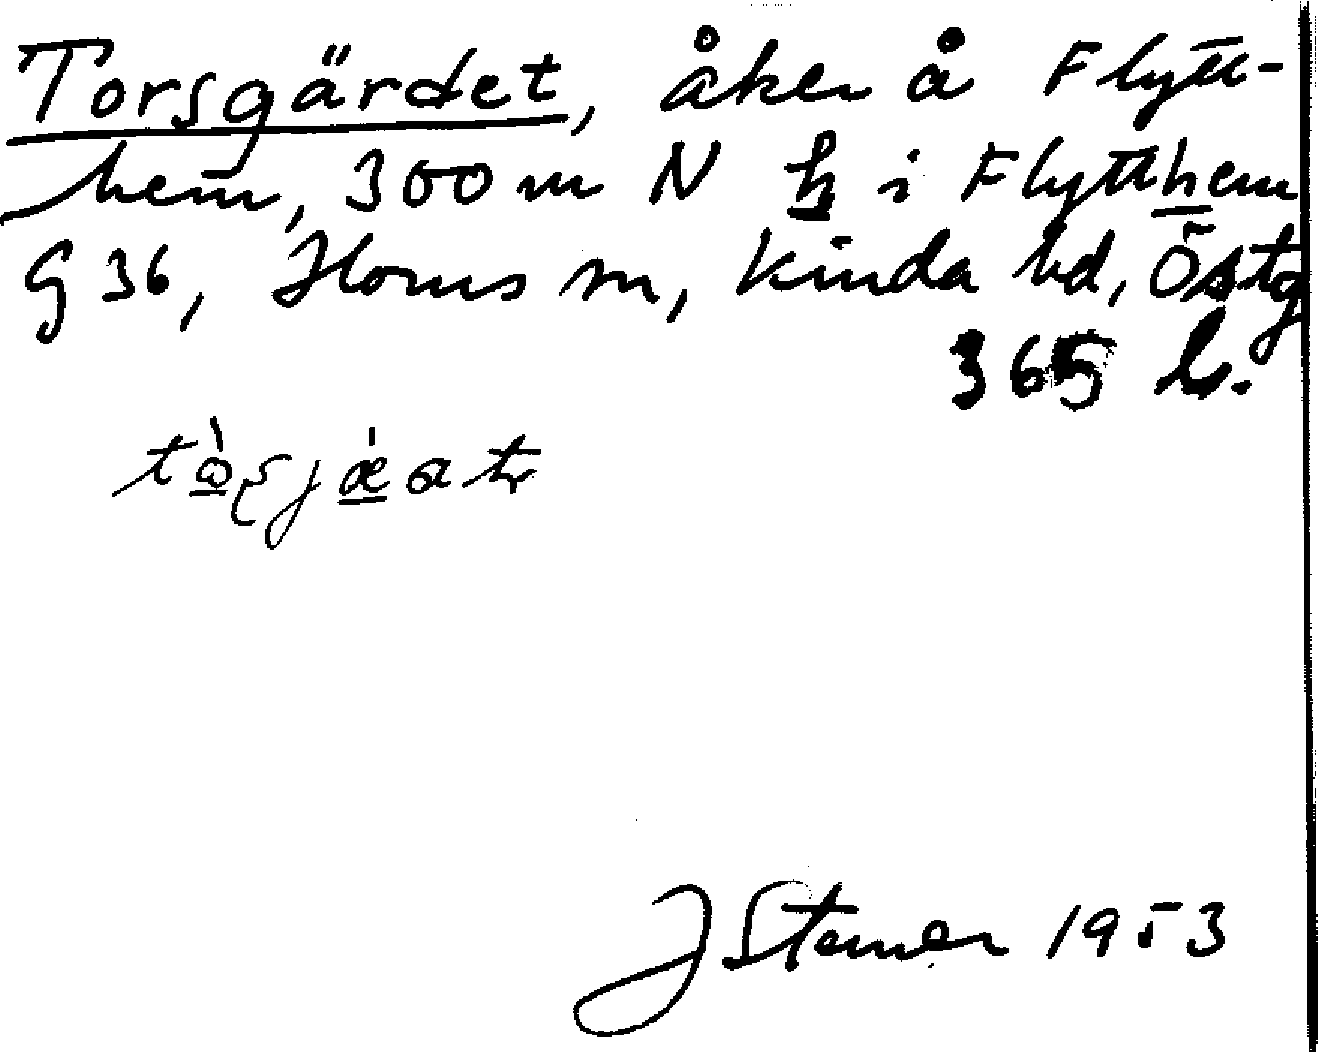 Torsgärdet, åker å Flytt-
hem, 300 m N h i Flytthem
G 36, Horns sn, Kinda hd, Östg
365 b.
J Stemer 1953